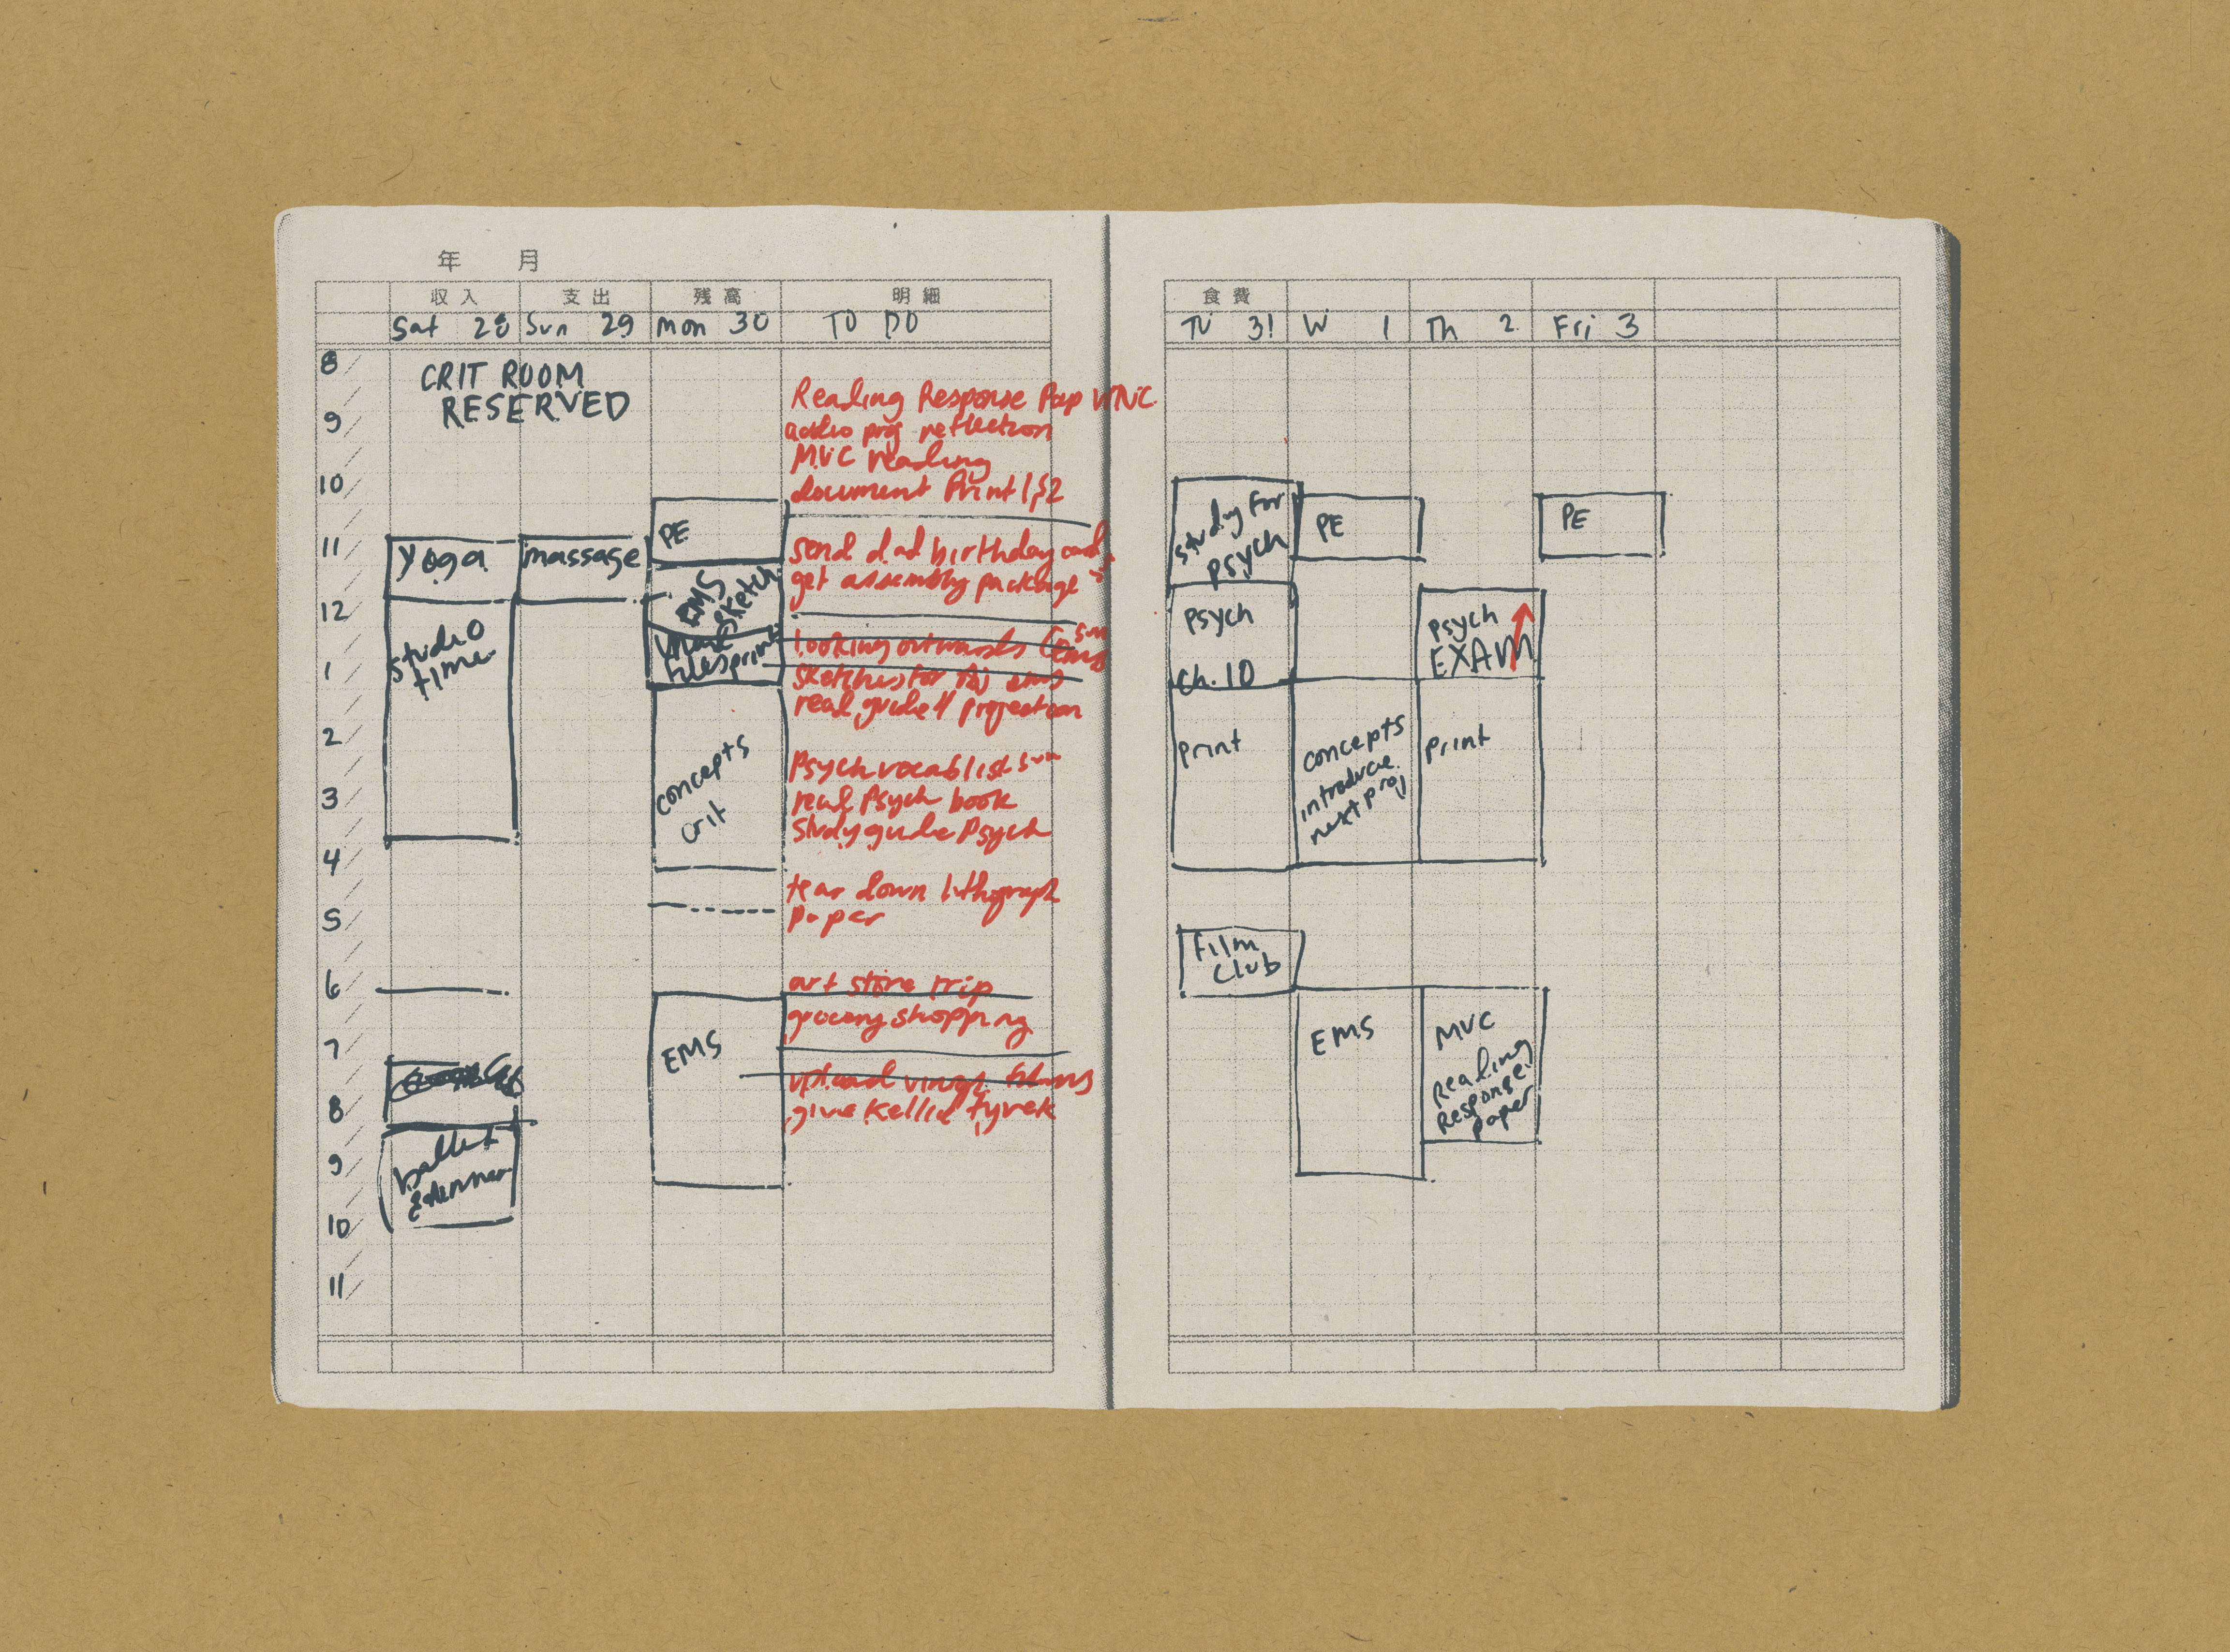 年 月
収入 支出 残高 明細
Sat 28 Sun 29 Mon 30 TO DO
8
9
10
11
12
1
2
3
4
5
6
7
8
9
10
11
CRIT ROOM
RESERVED
yoga
studio
time
ballet
& dinner
massage
PE
EMS
sketch
files print
concepts
crit
EMS
Reading Response Pap MVC
audio proj reflection
MVC reading
document Print 1 & 2
send dad birthday card
get assembly package
looking outwards
sketches for
read guide 4 projection
Psych vocab list sun
read Psych book
study guide Psych
tear down lithograph
paper
art store trip
grocery shopping
upload
give Kellie tyvek
食費
Tu 31 W 1 Th 2 Fri 3
study for
psych
Psych
Ch. 10
print
Film
Club
PE
concepts
introduce
next proj
EMS
psych
EXAM
print
MVC
Reading
Response
paper
PE